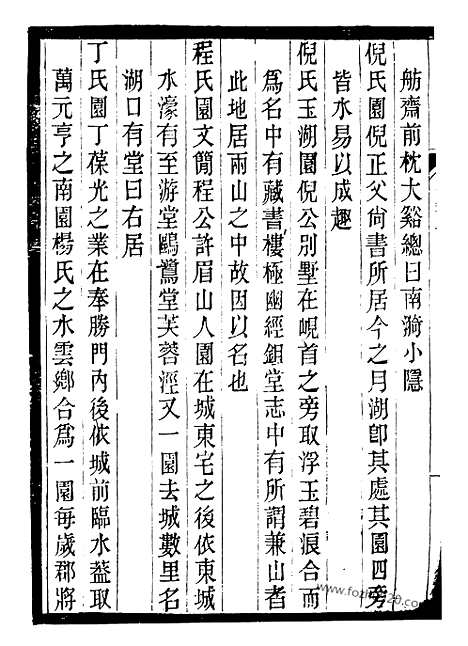 舫齋前枕大谿總曰南漪小隱
倪氏園倪正父尙書所居今之月湖卽其處其園四旁
皆水易以成趣
倪氏玉湖園倪公別墅在峴首之旁取浮玉碧浪合而
爲名中有藏書樓極幽經鉏堂志中有所謂兼山者
此地居兩山之中故因以名也
程氏園文簡程公許眉山人園在城東宅之後依東城
水濠有至游堂鷗鷺堂芙蓉涇又一園去城數里名
湖口有堂曰右居
丁氏園丁葆光之業在奉勝門內後依城前臨水葢取
萬元亨之南園楊氏之水雲鄉合爲一園每歲郡將